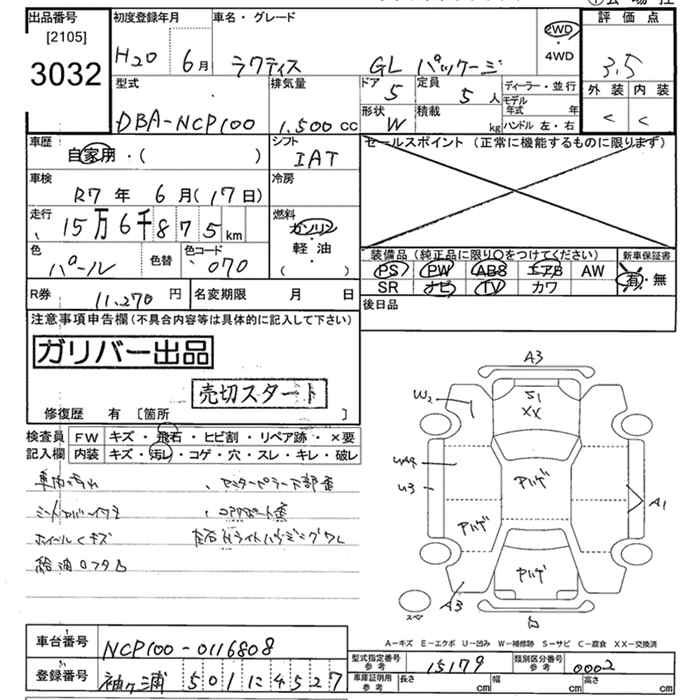 出品番号
[2105]
3032
初度登録年月
H20 6月
車名・グレード
ラクティス GL パッケージ
2WD
・
4WD
評価点
3.5
外装 内装
C C
型式
DBA-NCP100
排気量
1.500 cc
ドア
5
定員
5人
形状
W
積載
kg
ディーラー・並行
モデル
年式 年
ハンドル 左・右
車歴
自家用・( )
シフト
IAT
セールスポイント (正常に機能するものに限ります)
車検
R7年 6月(17日)
冷房
走行
15万6千875km
燃料
ガソリン
・
軽油
( )
色
パール
色替
色コード
070
装備品 (純正品に限り○をつけてください)
PS PW ABS エアB AW
SR ナビ TV カワ
新車保証書
有・無
R券 11,270円
名変期限 月 日
後日品
注意事項申告欄(不具合内容等は具体的に記入して下さい)
ガリバー出品
売切スタート
修復歴 有 [箇所 ]
検査員
記入欄
FW キズ・飛石・ヒビ割・リペア跡・×要
内装 キズ・汚レ・コゲ・穴・スレ・キレ・破レ
ホイールキズ
A3
W2
S1
XX
U3
アハゲ
アハゲ
アハゲ
A1
A3
スペア
A-キズ E-エクボ U-凹み W-補修跡 S-サビ C-腐食 XX-交換済
車台番号 NCP100-0116808
登録番号 袖ヶ浦 501に4527
型式指定番号
参考
15179
類別区分番号
参考
0002
車庫証明用
参考
長さ cm 幅 cm 高さ cm